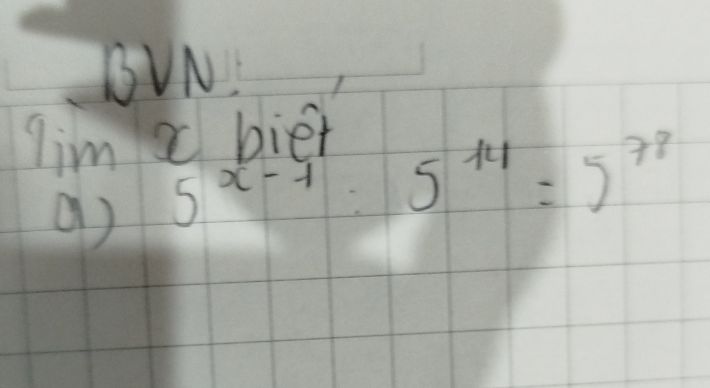 BVN:
Tìm x biết
a) 5^{x-1} : 5^{14} = 5^{78}